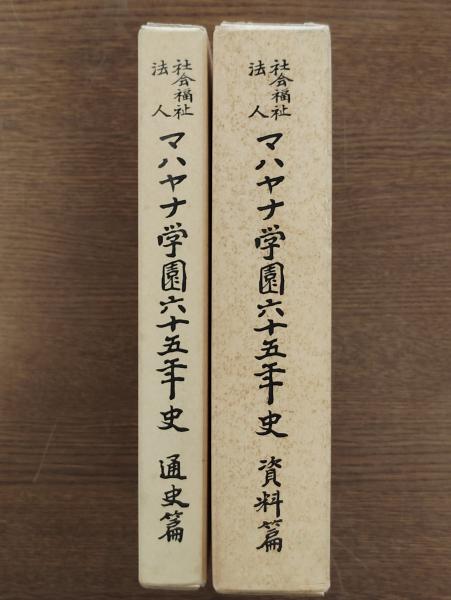 社会福祉
法人
マハヤナ学園六十五年史 資料篇
社会福祉
法人
マハヤナ学園六十五年史 通史篇